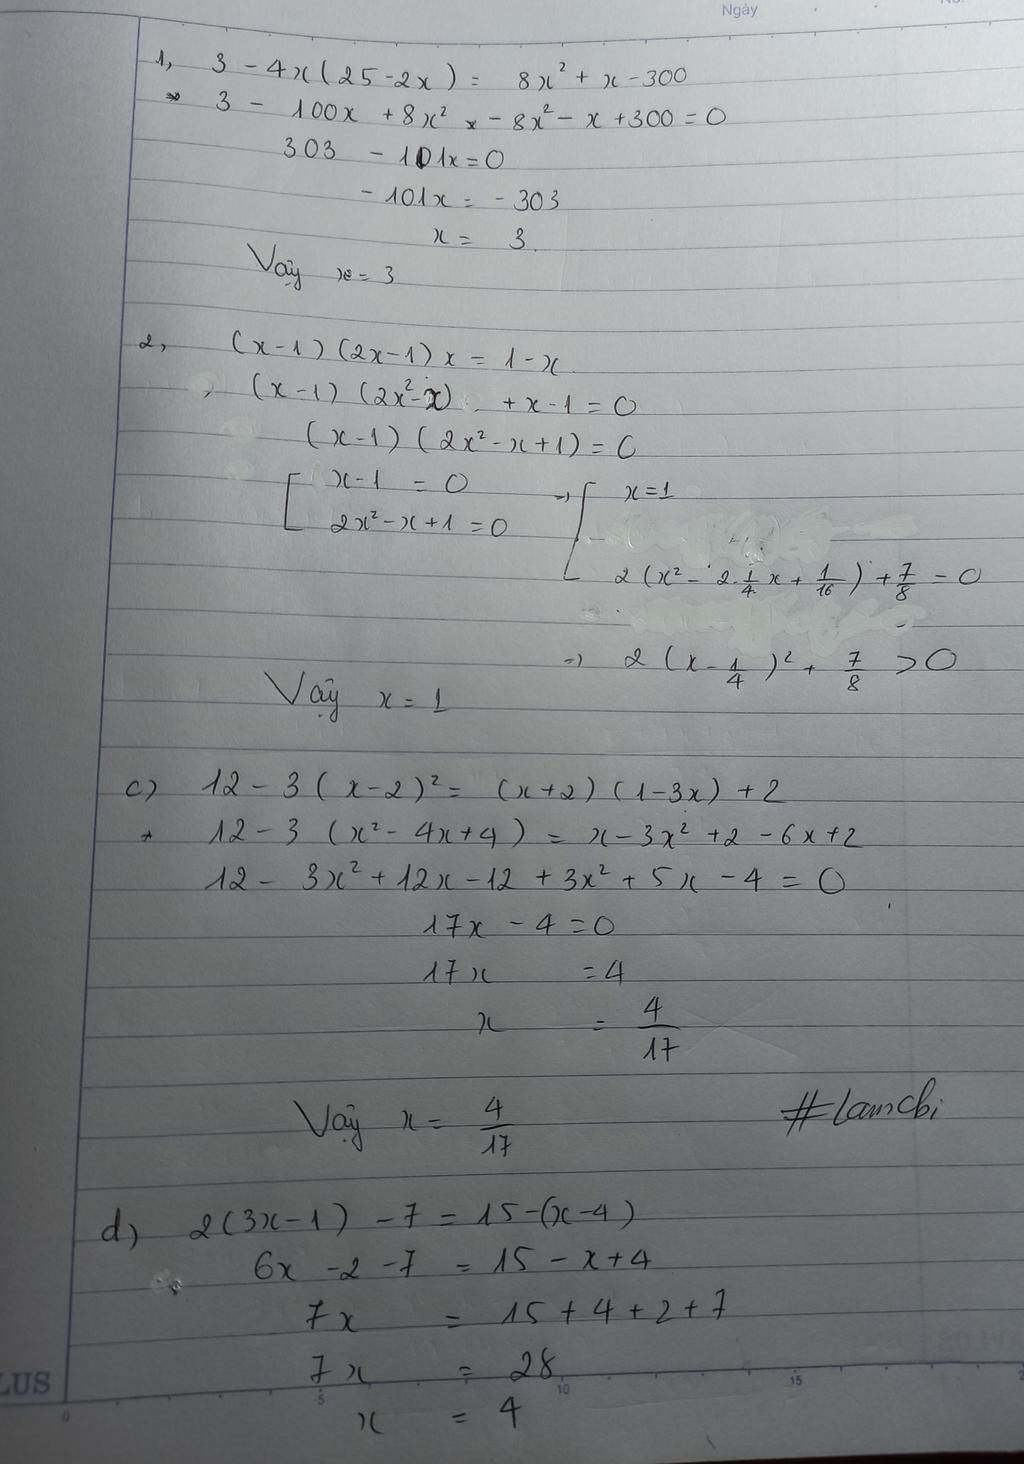 Ngày
1, 3 - 4x(25-2x) = 8x² + x - 300
3 - 100x + 8x² - 8x² - x + 300 = 0
303 - 101x = 0
- 101x = - 303
x = 3.
Vậy x = 3
2, (x-1)(2x-1)x = 1-x
(x-1)(2x²-x) + x-1 = 0
(x-1)(2x²-x+1) = 0
[ x-1 = 0 => [ x=1
2x²-x+1 = 0
2(x² - 2.1/4x + 1/16) + 7/8 = 0
=> 2(x-1/4)² + 7/8 > 0
Vậy x = 1
c) 12 - 3(x-2)² = (x+2)(1-3x)+2
12 - 3(x² - 4x+4) = x - 3x² + 2 - 6x + 2
12 - 3x² + 12x - 12 + 3x² + 5x - 4 = 0
17x - 4 = 0
17x = 4
x = 4/17
Vậy x = 4/17
#lamchi
d) 2(3x-1) - 7 = 15-(x-4)
6x - 2 - 7 = 15 - x + 4
7x = 15 + 4 + 2 + 7
7x = 28
x = 4
LUS
0 5 10 15